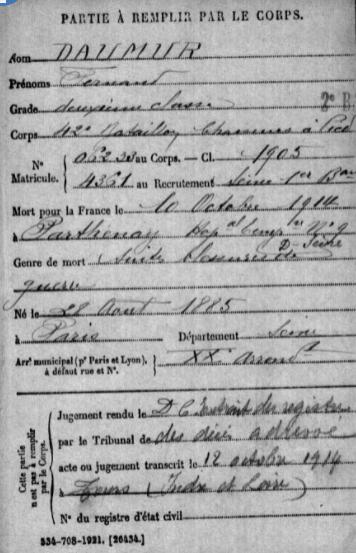 PARTIE À REMPLIR PAR LE CORPS.
Nom DAUMUR
Prénoms Fernand
Grade deuxième classe
Corps 42e Bataillon Chasseurs à Pied
No Matricule. au Corps. — Cl. 1905
4361 au Recrutement Seine 1er Bau
Mort pour la France le 10 Octobre 1914
à Parthenay Hop al temp No 9
D. Sèvres
Genre de mort Suite blessures de
guerre
Né le 28 Aout 1885
à Paris Département Seine
Arrt municipal (pr Paris et Lyon), à défaut rue et No. XXe Arrondt
Cette partie n'est pas à remplir par le Corps.
Jugement rendu le D. C. Extrait du registre
par le Tribunal de des décès adressé
acte ou jugement transcrit le 12 octobre 1914
à Tours (Indre et Loire)
No du registre d'état civil
534-708-1921. [26434.]